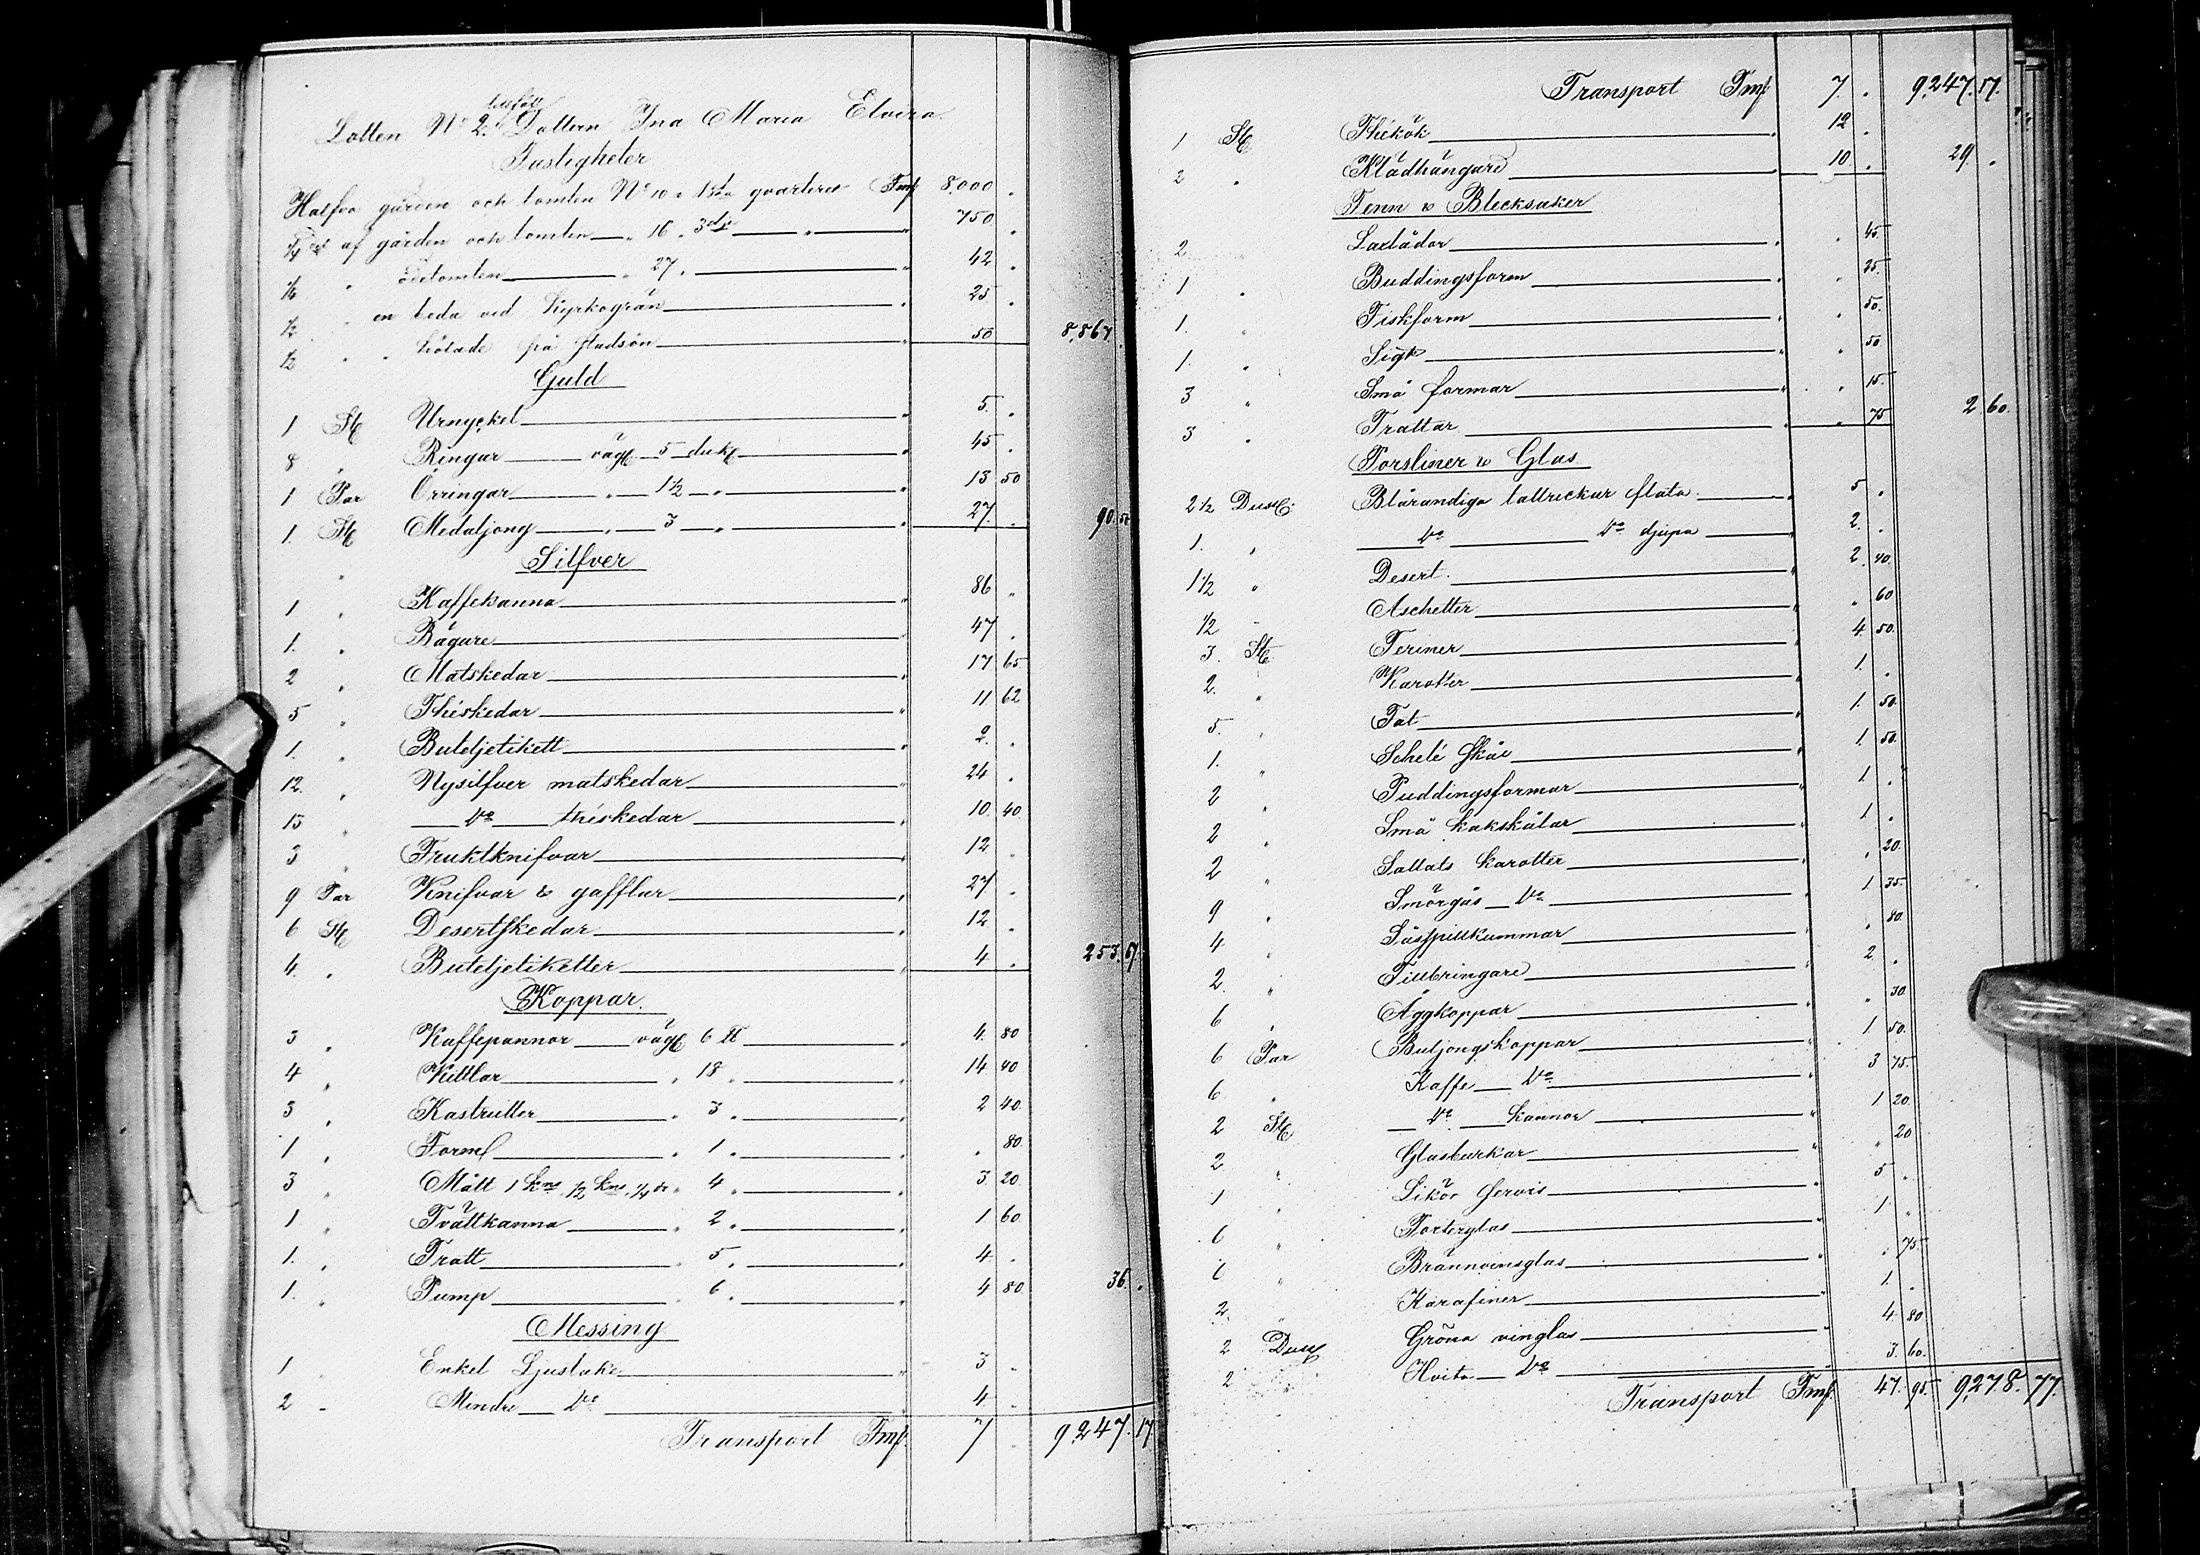 Lotten No 2. tillföll Dottern Ina Maria Elvira.
Fastigheter
Halfva gården och tomten No 10 i 1sta qvarteret Fmk 8,000 .
1/4 af gården och tomten — " 16 " 3dje — " — " 750 .
1/6 " ödetomten — " 27 " — " 42 .
1/2 " en beda vid Kyrkogrän — " 25 .
1/2 " " hölade på stadsön — " 50 8,867 .
Guld
1 St Urnyckel — " 5 .
8 " Ringar — vägt 5 duk — " 45 .
1 Par Örringar — " — 1 1/2 — " — " 13 50
1. St Medaljong — " — 3 — " — " 27. . 90. 50
Silfver
1 " Kaffekanna — " 86 "
1. " Bägare — " 47 .
2 " Matskedar — " 17 65
5 " Théskedar — " 11 62
1. " Buteljetikett — " 2. .
12. " Nysilfver matskedar — " 24 .
13 " — Do — théskedar — " 10 40
3 " Fruktknifvar — " 12 .
9 Par Knifvar & gafflar — " 27 .
6 St Desertskedar — " 12 .
4. " Buteljetiketter — " 4 . 253. 67
Koppar.
3 " Kaffepannor — vägt 6 ℔ — " 4. 80
4 " Kittlar — " 18 " — " 14 40
3 " Kastruller — " 3 " — " 2 40.
1 " Form — " 1 " — " . 80
3 " Mått 1 kna 1/2 kna 1/4 do " 4 " — " 3 20
1 " Tvättkanna — " 2 " — " 1 60
1. " Tratt — " 5 " — " 4 .
1. " Pump — " 6 " — " 4 80 36. .
Messing
1 " Enkel Ljustake — " 3 .
2 " Mindre — Do — " 4 .
Transport Fmk 7 . 9247. 17
Transport Fmk 7. . 9,247. 17.
1 St Thékök — " 12 .
2 " Klädhängare — " 10 . 29 .
Tenn & Blecksaker
2 " Laxlådor — " " 45
1 " Buddingsform — " " 25.
1. " Fiskform — " " 50.
1. " Sigt — " " 50
3 " Små formar — " " 15.
3 " Trattar — " " 75 2 60.
Porsliner & Glas
2 1/2 Duss. Blårandiga tallrickar flata — " 5 .
1. " — Do — Do djupa — " 2. .
1 1/2 " Desert. — " 2. 40.
1/2 " Aschetter — " " 60
3. St Teriner — " 4. 50.
2. " Karotter — " 1. .
5. " Fat — " 1. 50.
1. " Schelé skål — " 1. 50.
2 " Puddingsformar — " 1. .
2 " Små kakskålar — " 1 .
2 " Sallats karotter — " " 20.
9 " Smörgås — Do — " 1 35.
4 " Såsspillkummar — " " 80.
2. " Tillbringare — " 2. .
6 " Äggkoppar — " " 30.
6 Par Buljongskoppar — " 1 50.
6 " Kaffe — Do — " 3 75.
2 St — Do — kannor — " 1 20
2 " Glasburkar — " " 20
1 " Likör servis — " 5 .
6 " Porterglas — " 1 .
6 " Brännvinsglas — " " 75.
2. " Karafiner — " 1. .
2 Duss Gröna vinglas — " 4 80
2 " Hvita — Do — " 3. 60.
Transport Fmk 47. 95. 9,278. 77.